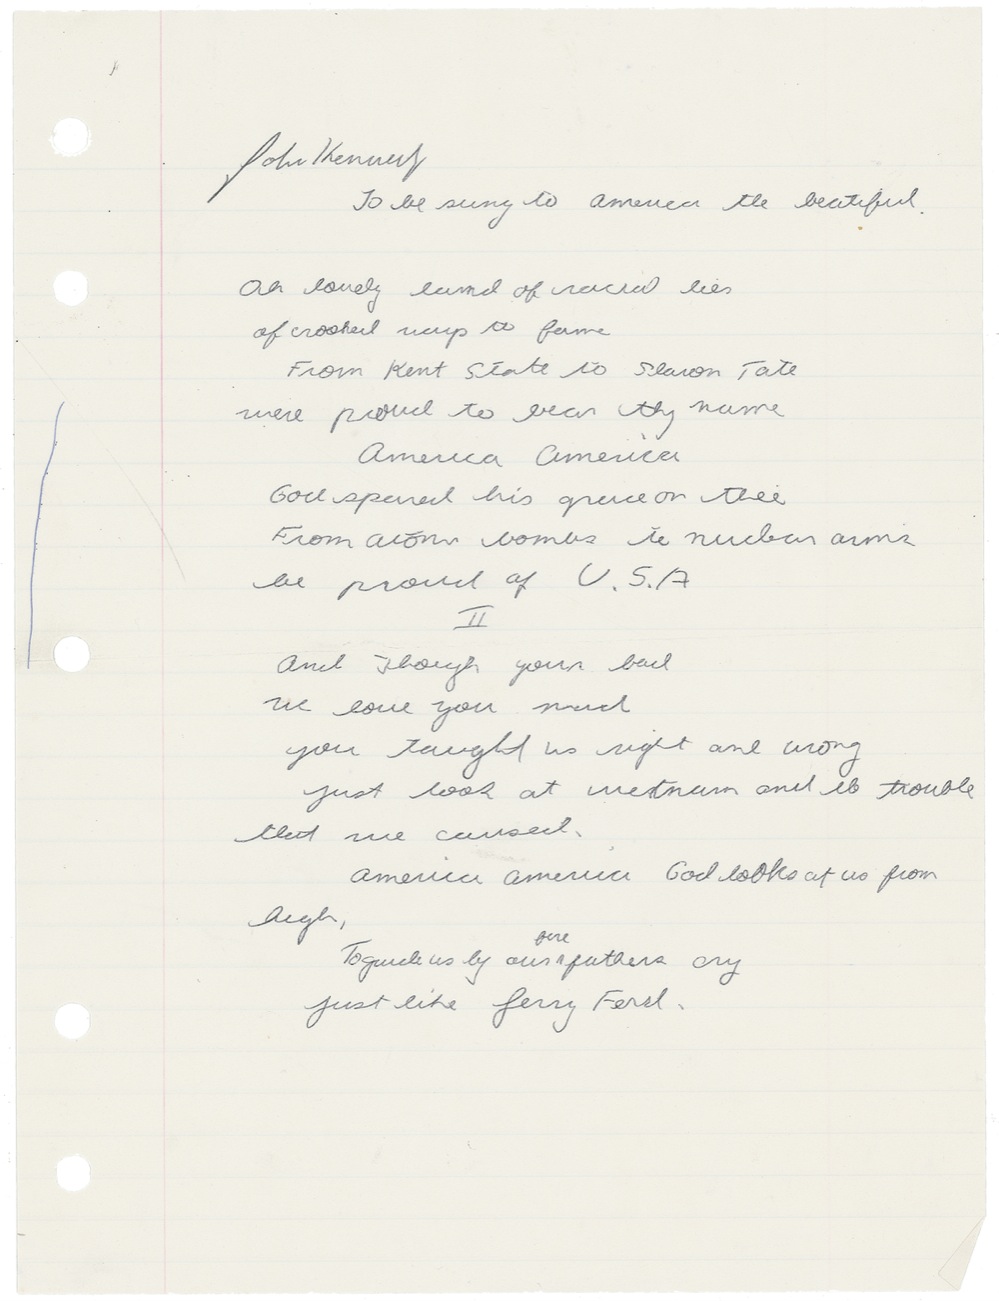 John Kennedy
To be sung to America the beautiful.
Oh lovely land of racial lies
of crooked ways to fame
From Kent State to Sharon Tate
were proud to bear thy name
America America
God spared his grace on thee
From atom bombs to nuclear arms
be proud of U.S.A
II
And though your bad
we love you much
you taught us right and wrong
just look at vietnam and the trouble
that we caused.
America america God looks at us from
high,
fore
To guide us by our fathers cry
just like Jerry Ford.